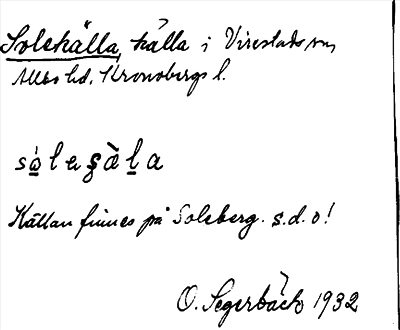 Solekälla, källa i Virestads sn,
Allbo hd. Kronobergs l.
sò̱leʂὰḻa
Källan finnes på Soleberg. s.d.o!
O. Segerbäck 1932